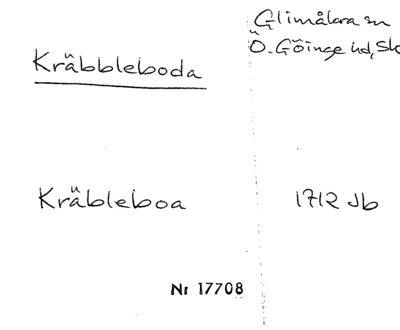 Glimåkra sn
Ö. Göinge hd, Sk
Kräbbleboda
Kräbleboa
1712 Jb
Nr 17708